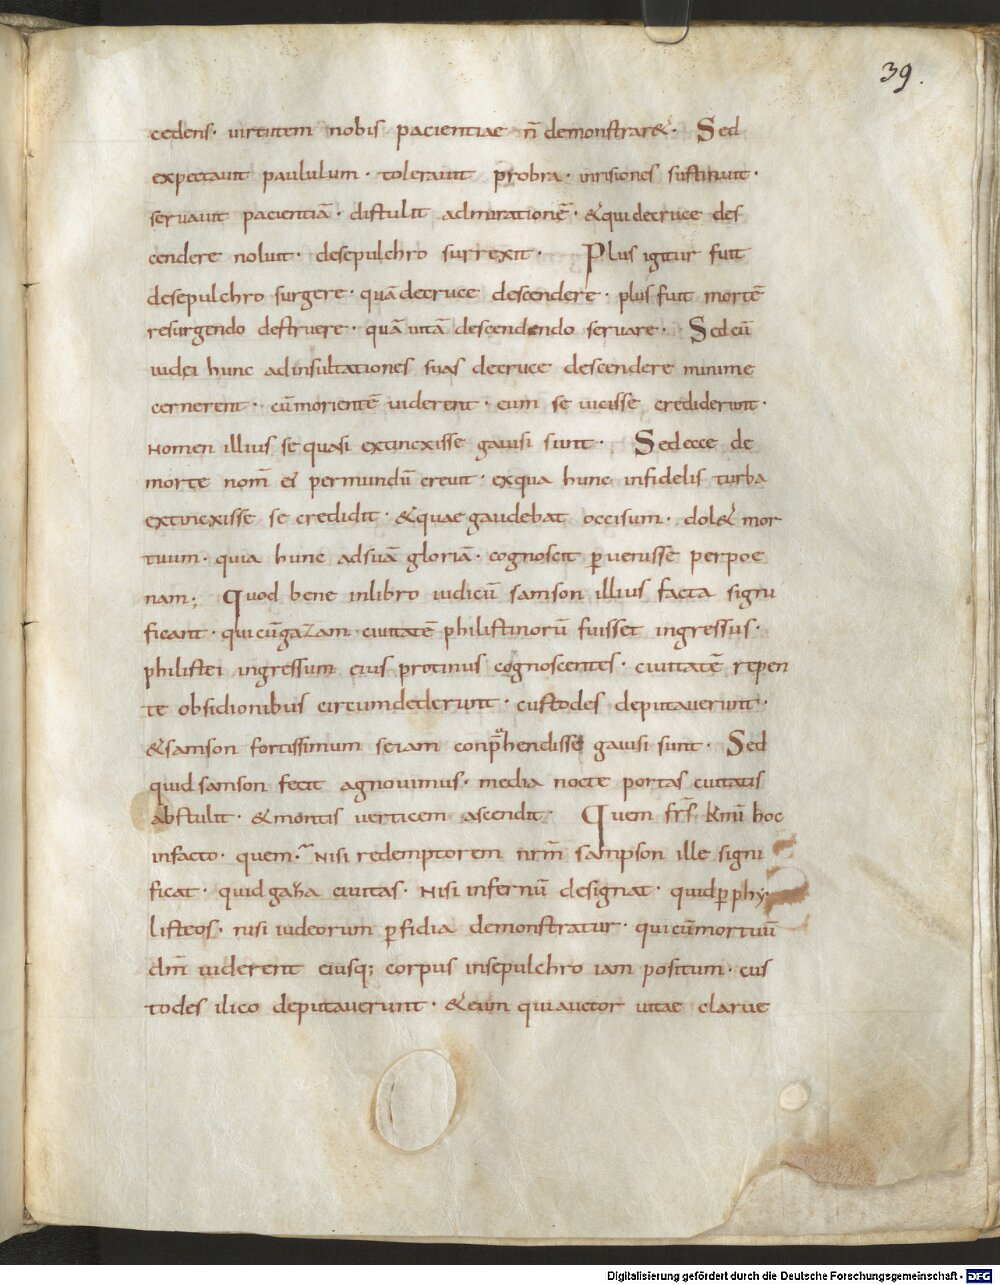 39.
cedens· uirtutem nobis pacientiae n̄ demonstrar&· Sed
expectauit paululum· tolerauit probra· inrisiones sustinuit·
seruauit pacientiā· distulit admirationē· &qui decruce des
cendere noluit· desepulchro surrexit· Plus igitur fuit
desepulchro surgere· quā decruce descendere· plus fuit mortē
resurgendo destruere· quā uitā descendendo seruare· Sed cū
iudei hunc adinsultationes suas decruce descendere minime
cernerent· cū morientē uiderent· eum se uicisse crediderunt·
Nomen illius se quasi extincxisse gauisi sunt· Sedecce de
morte nom̄ ei' per mundū creuit· exqua hunc infidelis turba
extincxisse se credidit· &quae gaudebat occisum· dol& mor
tuum· quia hunc adsuā gloriā· cognoscit puenisse perpoe
nam; Quod bene inlibro iudicū samson illius facta signi
ficant· qui cū gazam ciuitatē philistinorū fuisset ingressus·
philistei ingressum eius protinus cognoscentes· ciuitatē repen
te obsidionibus circumdederunt· custodes deputauerunt·
&samson fortissimum se iam conp̄hendisse gauisi sunt· Sed
quid samson fecit agnouimus· media nocte portas ciuitatis
abstulit· &montis uerticem ascendit· Quem fr̄s· km̄i hoc
infacto· quem· Nisi redemptorem nr̄m sampson ille signi
ficat· quid gaza ciuitas· Nisi infernū designat· quid p phy
listeos· nisi iudeorum pfidia demonstratur· qui cū mortuū
dn̄m uiderent eiusq; corpus insepulchro iam positum· cus
todes ilico deputauerunt· &eum qui auctor uitae clarue
Digitalisierung gefördert durch die Deutsche Forschungsgemeinschaft - DFG